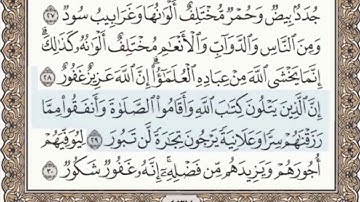 جُدَدٌۢ بِيضٌ وَحُمْرٌ مُّخْتَلِفٌ أَلْوَٰنُهَا وَغَرَابِيبُ سُودٌ ٢٧
وَمِنَ ٱلنَّاسِ وَٱلدَّوَآبِّ وَٱلْأَنْعَٰمِ مُخْتَلِفٌ أَلْوَٰنُهُۥ كَذَٰلِكَ ۗ
إِنَّمَا يَخْشَى ٱللَّهَ مِنْ عِبَادِهِ ٱلْعُلَمَٰٓؤُا۟ ۗ إِنَّ ٱللَّهَ عَزِيزٌ غَفُورٌ ٢٨
إِنَّ ٱلَّذِينَ يَتْلُونَ كِتَٰبَ ٱللَّهِ وَأَقَامُوا۟ ٱلصَّلَوٰةَ وَأَنفَقُوا۟ مِمَّا
رَزَقْنَٰهُمْ سِرًّا وَعَلَانِيَةً يَرْجُونَ تِجَٰرَةً لَّن تَبُورَ ٢٩ لِيُوَفِّيَهُمْ
أُجُورَهُمْ وَيَزِيدَهُم مِّن فَضْلِهِۦٓ ۚ إِنَّهُۥ غَفُورٌ شَكُورٌ ٣٠